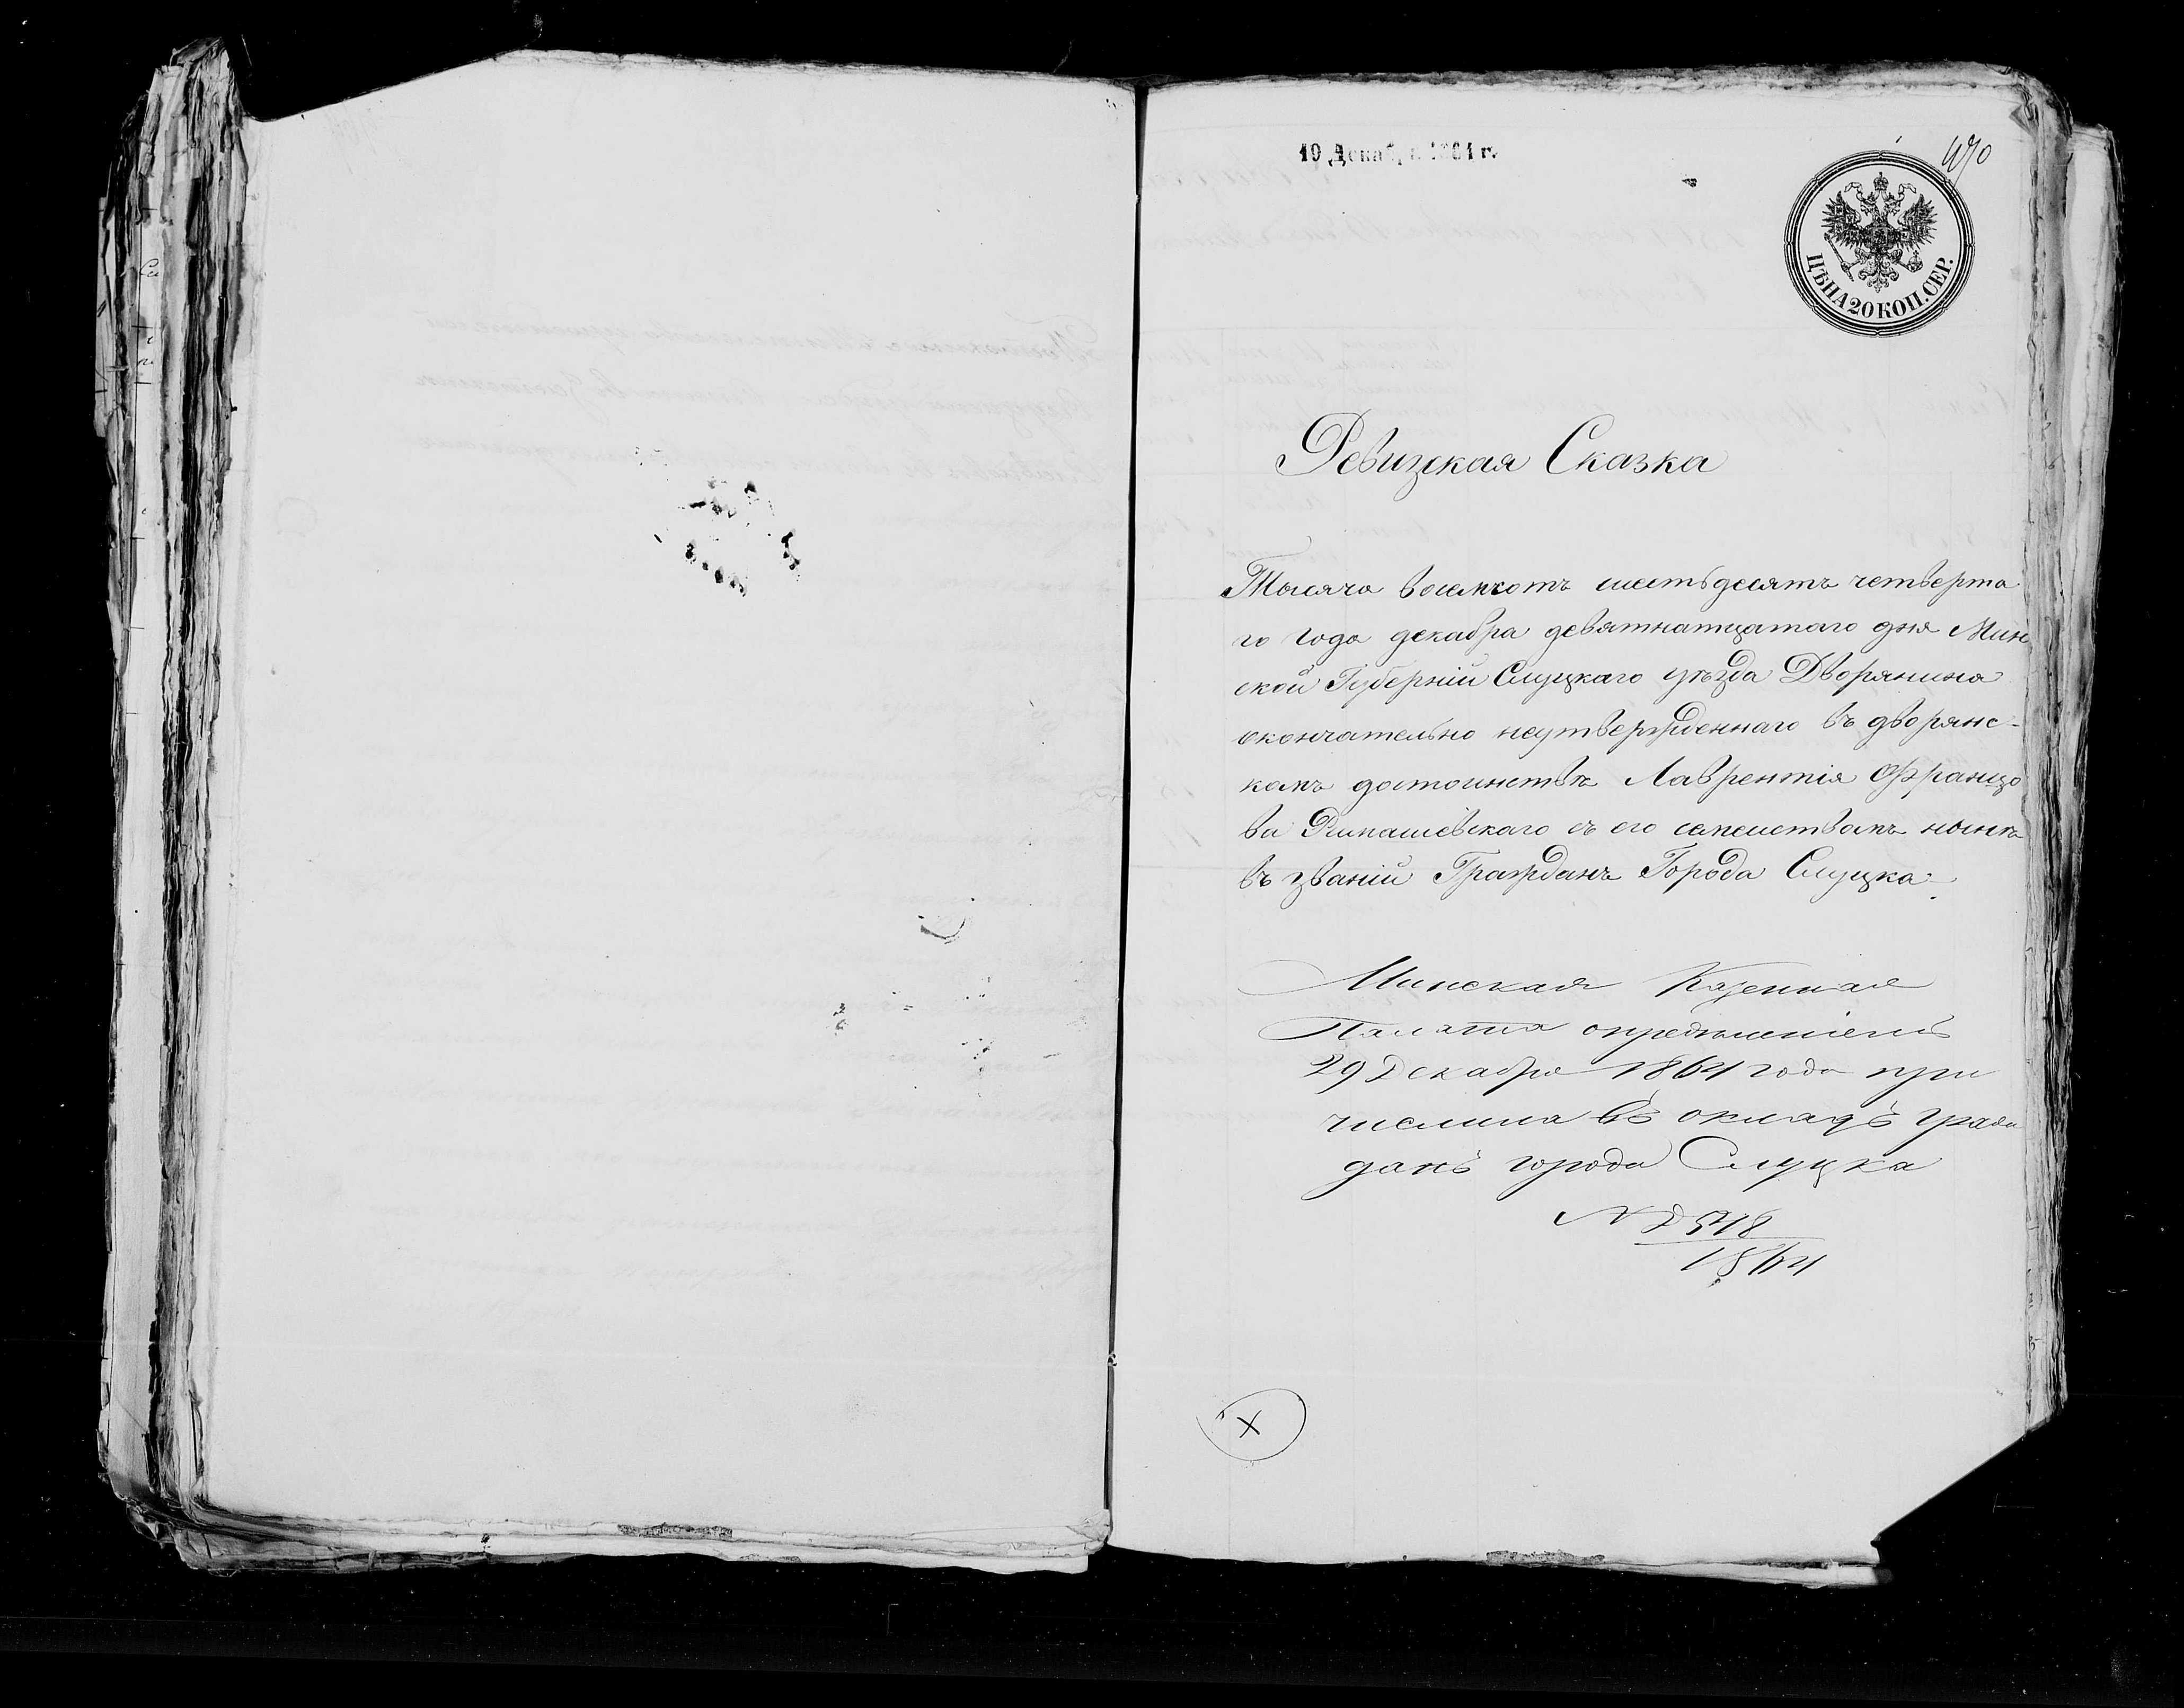 19 Декабря 1864 г.
470
ЦѢНА 20 КОП. СЕР.
Ревизская Сказка
Тысяча восемсотъ шестьдесятъ четверта
го года декабра девятнатцатаго дня Мин
ской Губерніи Слуцкаго уѣзда Дворянина
окончательно неутвержденнаго въ дворянс-
комъ достоинствѣ Лаврентія Францо
ва съ его семействомъ нынѣ
въ званіи Гражданъ Города Слуцка.
Минская Казенная
Палата опредѣленіемъ
29 Декабря 1864 года при
числила въ окладъ граж
данъ города Слуцка
1864
X